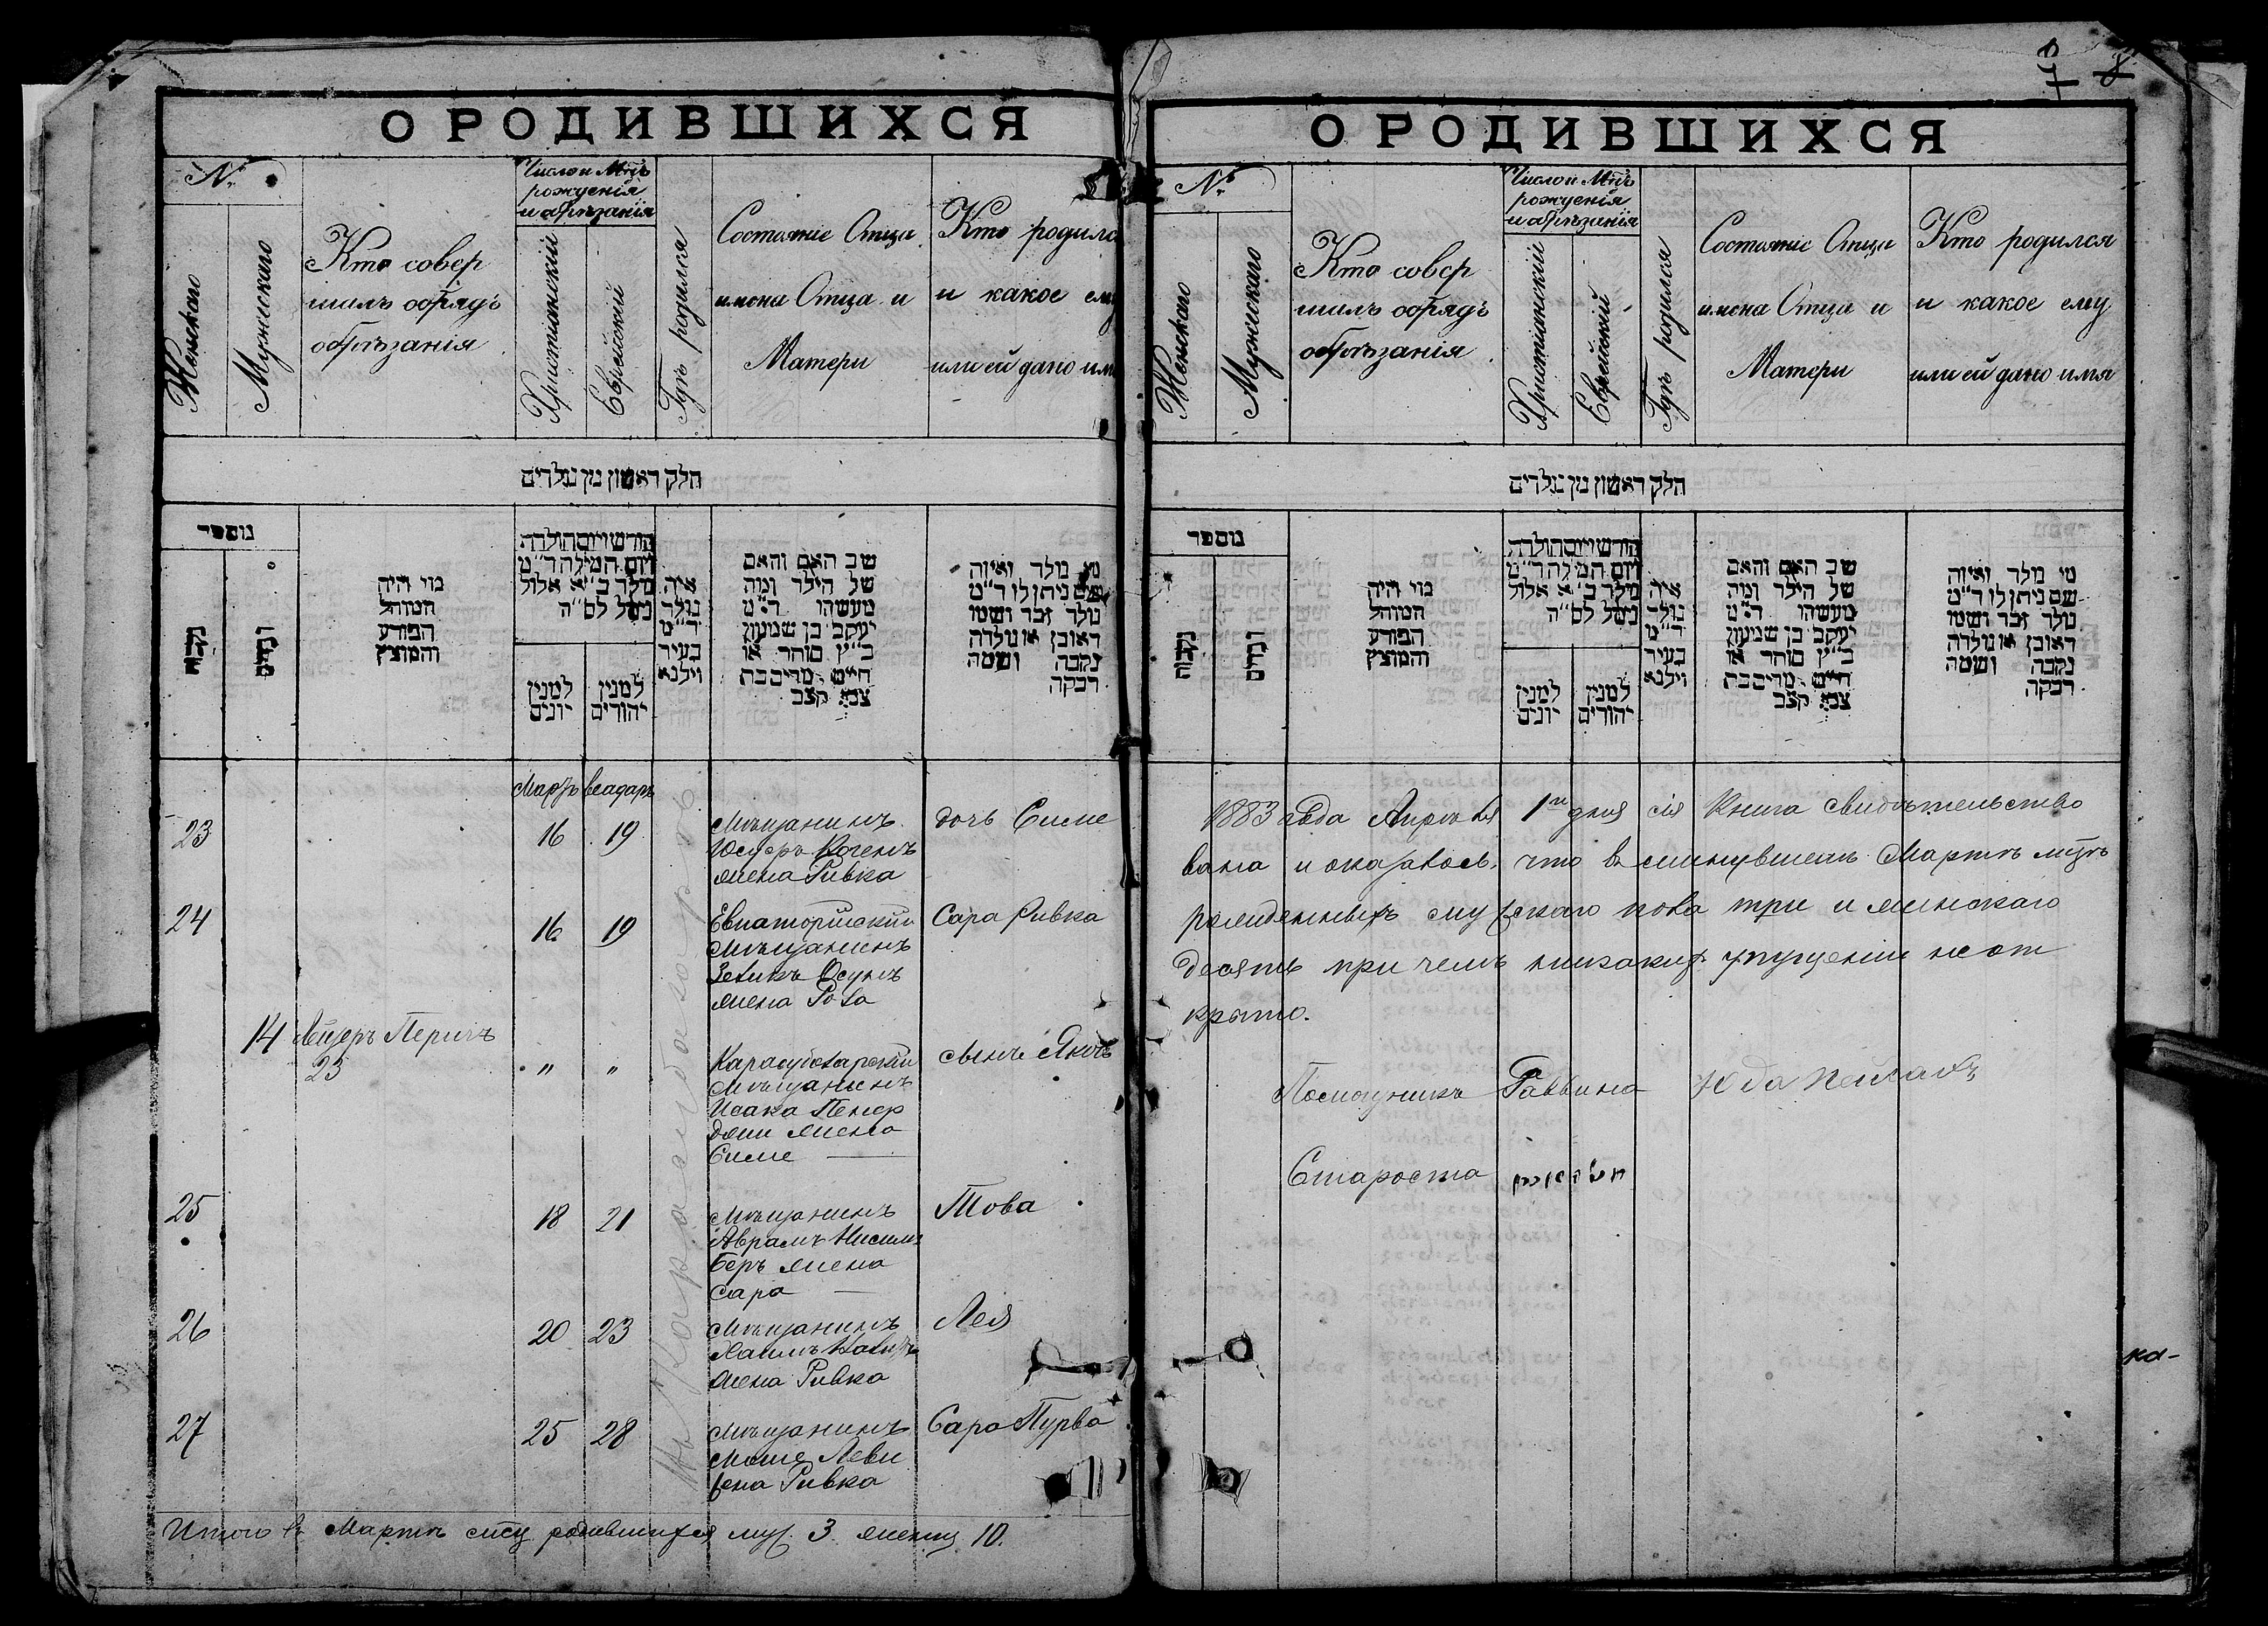 О РОДИВШИХСЯ
№
Женскаго
Мужескаго
Кто совер
шилъ обрядъ
обрѣзанія
Число и Мѣц
рожденія
и обрѣзанія
Христіанскій
Еврейскій
Гдѣ родился
Состояніе Отца
имена Отца и
Матери
Кто родилс
и какое ему
или ей дано имя
חלק ראשון מן נולדים
מספר
נקבות
זכרים
מי היה
המוהל
הפורע
והמוצץ
חודש ויום הולדת
ויום המילה ד״מ
נולד ב״א אלול
נימל לס״ה
למנין
יונים
למנין
יהודים
איה
נולד
ד״מ
בעיר
ווילנא
שב האם והאם
של הילד ומה
מעשהו ד״מ
יעקב בן שמעון
כ״ץ סוחר או
חיים מרים בת
צבי קצב
מי נולד ואיזה
שם ניתן לו ד״מ
נולד זכר ושמו
ראובן או נולדה
נקבה ושמה
רבקה
Мартъ веадаръ
23
16 19
Мѣщанинъ
Юсуфъ Когенъ
жена Ривка
дочь Симе
24
16. 19
Евпаторійскій
Мѣщанинъ
Зеликъ
жена
Сара Ривка
14
Лейзеръ Перичъ
23
„ „
Карасубазарскій
Мѣщанинъ
Исака Пенер
джи жена
Симе —
сынъ Яковъ
25
18 21
Мѣщанинъ
Аврамъ Нисимъ
Беръ жена
Сара —
Това
26
20 23
Мѣщанинъ
Хаимъ
жена Ривка
Лея
27
25 28
Мѣщанинъ
Моше Леви
жена Ривка
Сара Пурва
Въ Карасубазарѣ
Итого въ Мартѣ мѣц родившихся муж. 3 женщ 10.
О РОДИВШИХСЯ
7 8
№
Женскаго
Мужескаго
Кто совер
шилъ обрядъ
обрѣзанія
Число и Мѣц
рожденія
и обрѣзанія
Христіанскій
Еврейскій
Гдѣ родился
Состояніе Отца
имена Отца и
Матери
Кто родился
и какое ему
или ей дано имя
חלק ראשון מן נולדים
מספר
נקבות
זכרים
מי היה
המוהל
הפורע
והמוצץ
חודש ויום הולדת
ויום המילה ד״מ
נולד ב״א אלול
נימל לס״ה
למנין
יונים
למנין
יהודים
איה
נולד
ד״מ
בעיר
ווילנא
שב האם והאם
של הילד ומה
מעשהו ד״מ
יעקב בן שמעון
כ״ץ סוחר או
חיים מרים בת
צבי קצב
מי נולד ואיזה
שם ניתן לו ד״מ
נולד זכר ושמו
ראובן או נולדה
נקבה ושמה
רבקה
1883 года Апрѣля 1го дня сія Книга свидѣтельство
вана и оказалось, что въ минувшемъ Мартѣ мѣцѣ
рожденныхъ мужскаго пола три и женскаго
десять при чемъ никакихъ упущеніи не от
крыто.
Помощникъ Раввина Юда
Староста
ка-